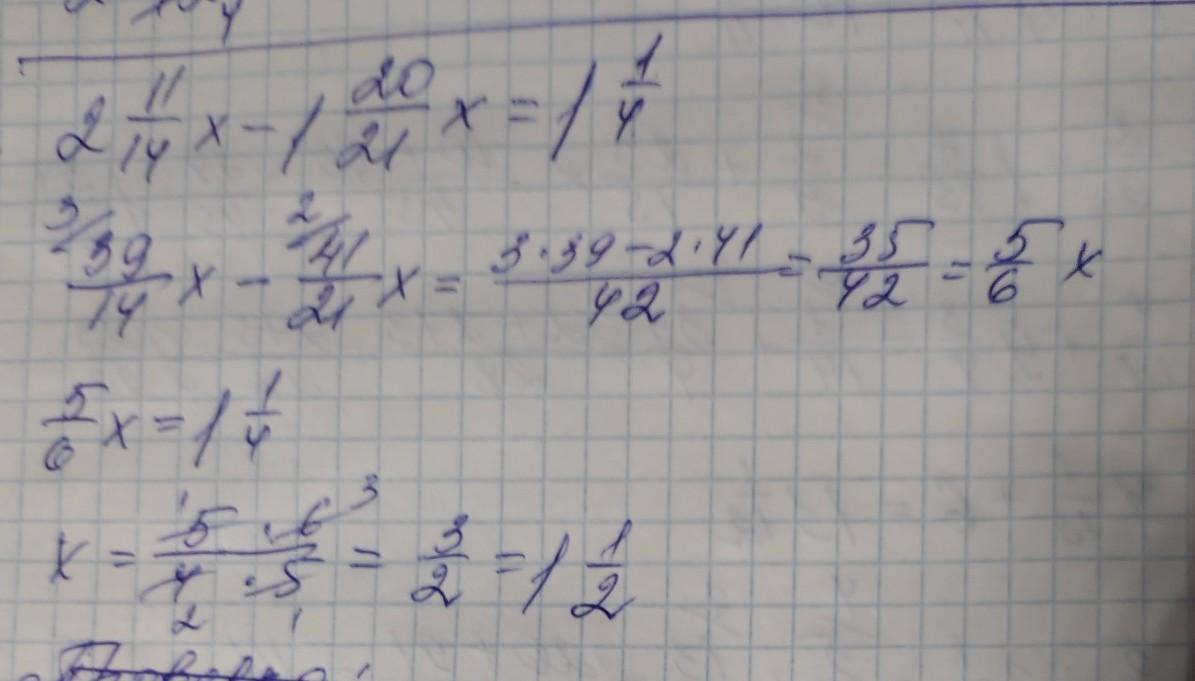 2 11/14 x - 1 20/21 x = 1 1/4
3/ 39/14 x - 2/ 41/21 x = 3·39-2·41/42 = 35/42 = 5/6 x
5/6 x = 1 1/4
x = 5·6/4·5 = 3/2 = 1 1/2